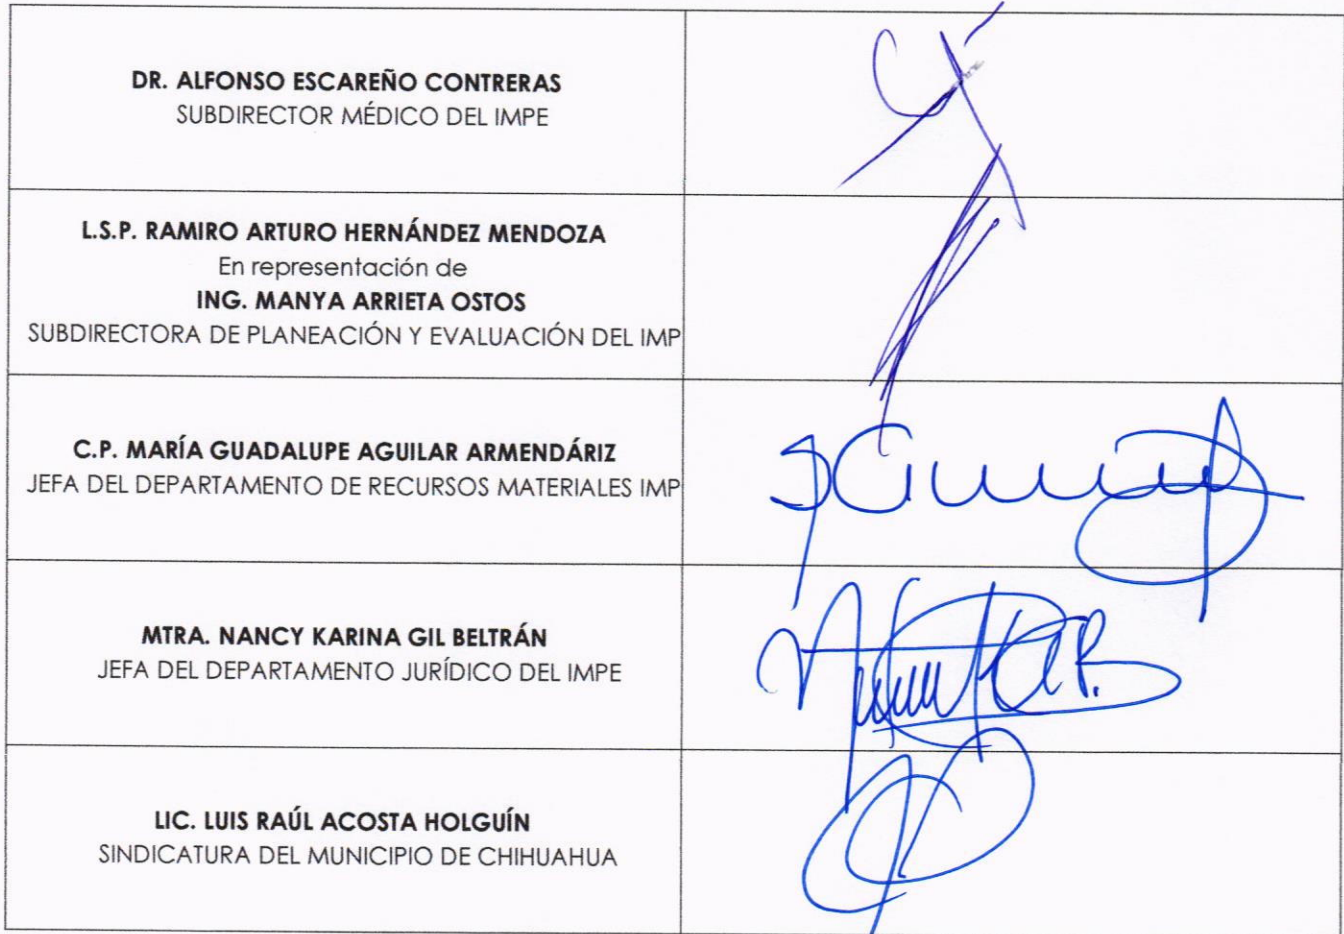 DR. ALFONSO ESCAREÑO CONTRERAS
SUBDIRECTOR MÉDICO DEL IMPE
L.S.P. RAMIRO ARTURO HERNÁNDEZ MENDOZA
En representación de
ING. MANYA ARRIETA OSTOS
SUBDIRECTORA DE PLANEACIÓN Y EVALUACIÓN DEL IMP
C.P. MARÍA GUADALUPE AGUILAR ARMENDÁRIZ
JEFA DEL DEPARTAMENTO DE RECURSOS MATERIALES IMP
MTRA. NANCY KARINA GIL BELTRÁN
JEFA DEL DEPARTAMENTO JURÍDICO DEL IMPE
LIC. LUIS RAÚL ACOSTA HOLGUÍN
SINDICATURA DEL MUNICIPIO DE CHIHUAHUA